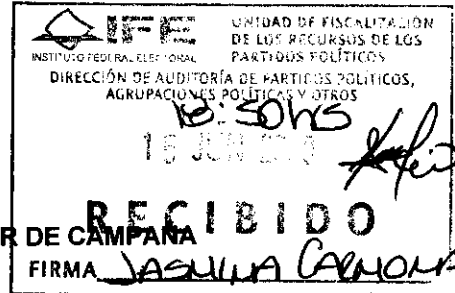 IFE
INSTITUTO FEDERAL ELECTORAL
UNIDAD DE FISCALIZACIÓN
DE LOS RECURSOS DE LOS
PARTIDOS POLÍTICOS
DIRECCIÓN DE AUDITORÍA DE PARTIDOS POLÍTICOS,
AGRUPACIONES POLÍTICAS Y OTROS
18:50hrs
JUN
RECIBIDO
R DE CAMPAÑA
FIRMA JASMINA CARMONA